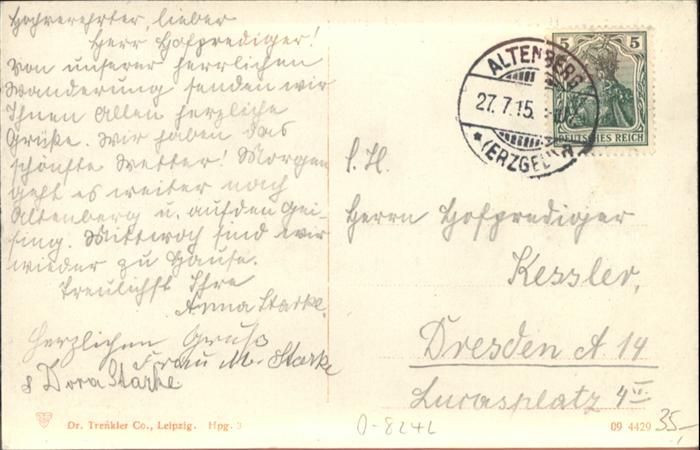 Hochverehrter, lieber
Herr Hofprediger!
Von unserer herrlichen
Wanderung senden wir
Ihnen Allen herzliche
Grüße. Wir haben das
schönste Wetter! Morgen
geht es weiter nach
Altenberg u. auf den Gei-
sing. Mittwoch sind wir
wieder zu Hause.
Treulichst Ihre
Anna Starke.
Herzlichen Gruß
Frau M. Starke
& Dora Starke
Dr. Trenkler Co., Leipzig. Hpg. 3
5 5
DEUTSCHES REICH
ALTENBERG
27.7.15.
(ERZGEB.)
S. H.
Herrn Hofprediger
Kessler,
Dresden A 14
Lucasplatz 4 II.
0-8242
09 4429
35,-